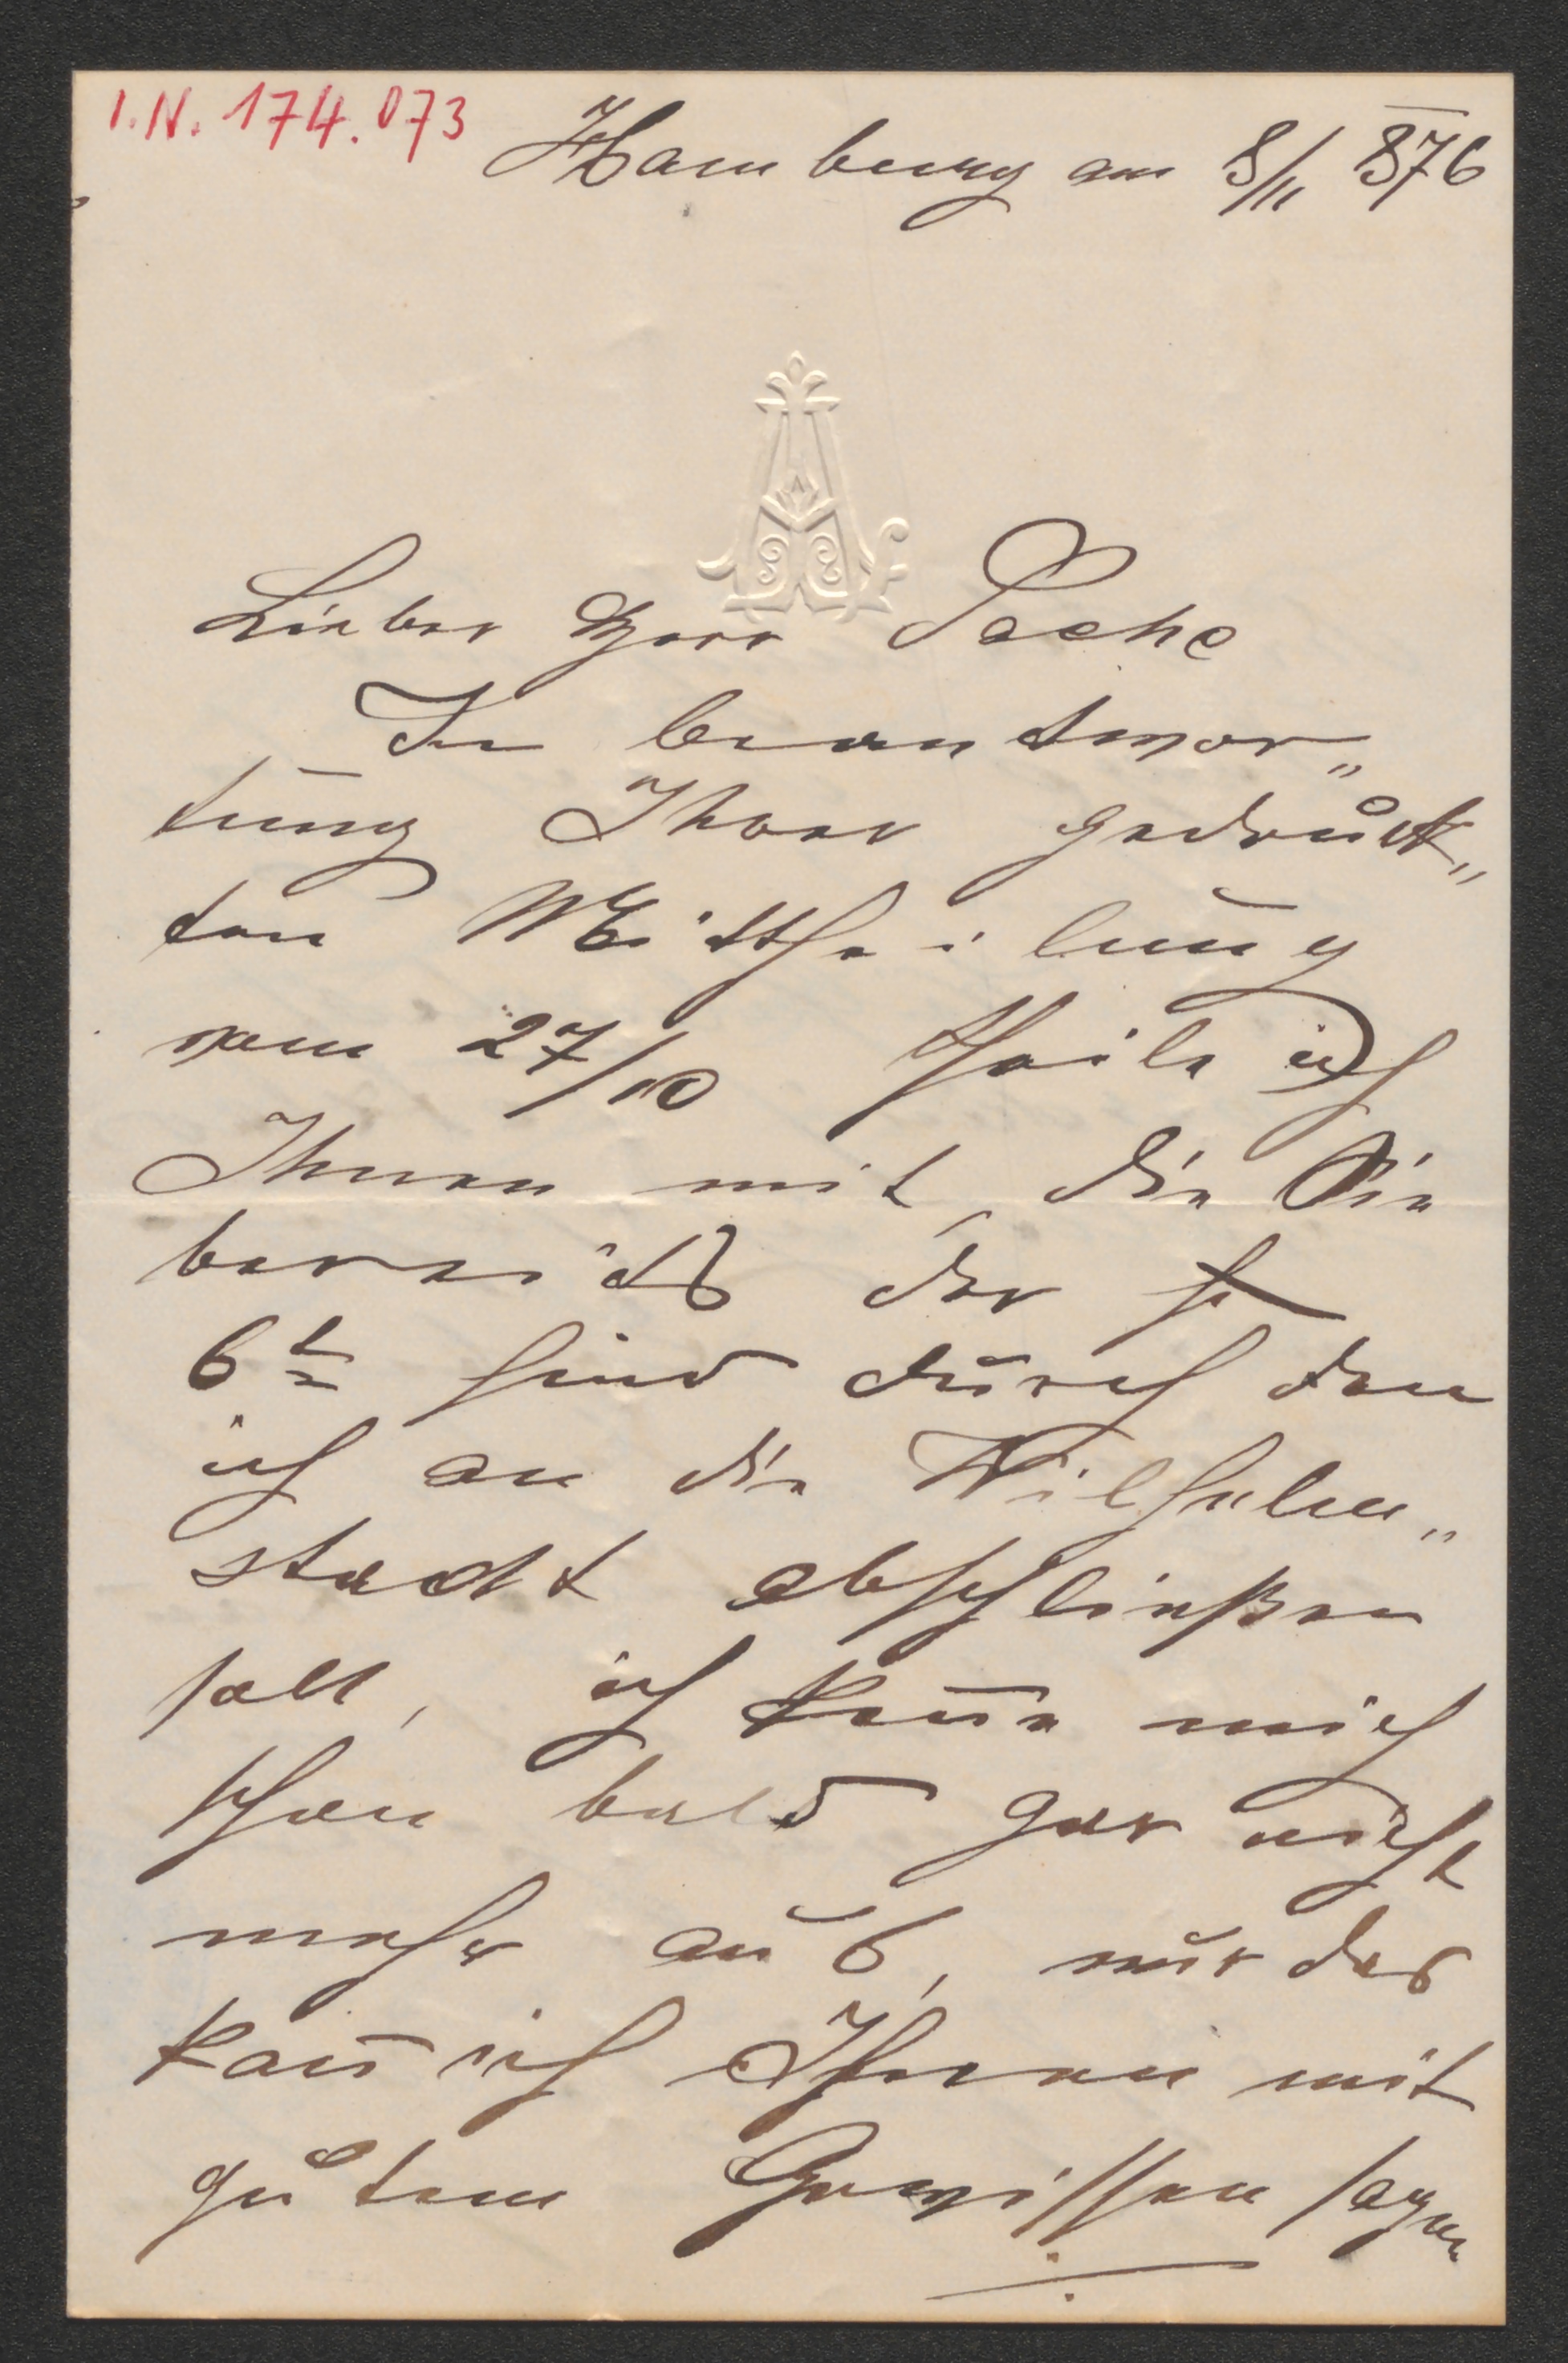 I.N. 174.073
Hamburg am 8/11 876
Lieber Herr Sachs
In beantwor„
tung Ihrer gedruck„
ten Mittheilung
vom 27/10 theile ich
Ihnen mit, die Sie
bereits der
6te sind durch den
ich an die Wilhelm„
stadt abschließen
soll, ich kenn̄e mich
schon bald gar nicht
mehr aus, nur das
kan̄ ich Ihnen mit
gutem Gewissen sagen